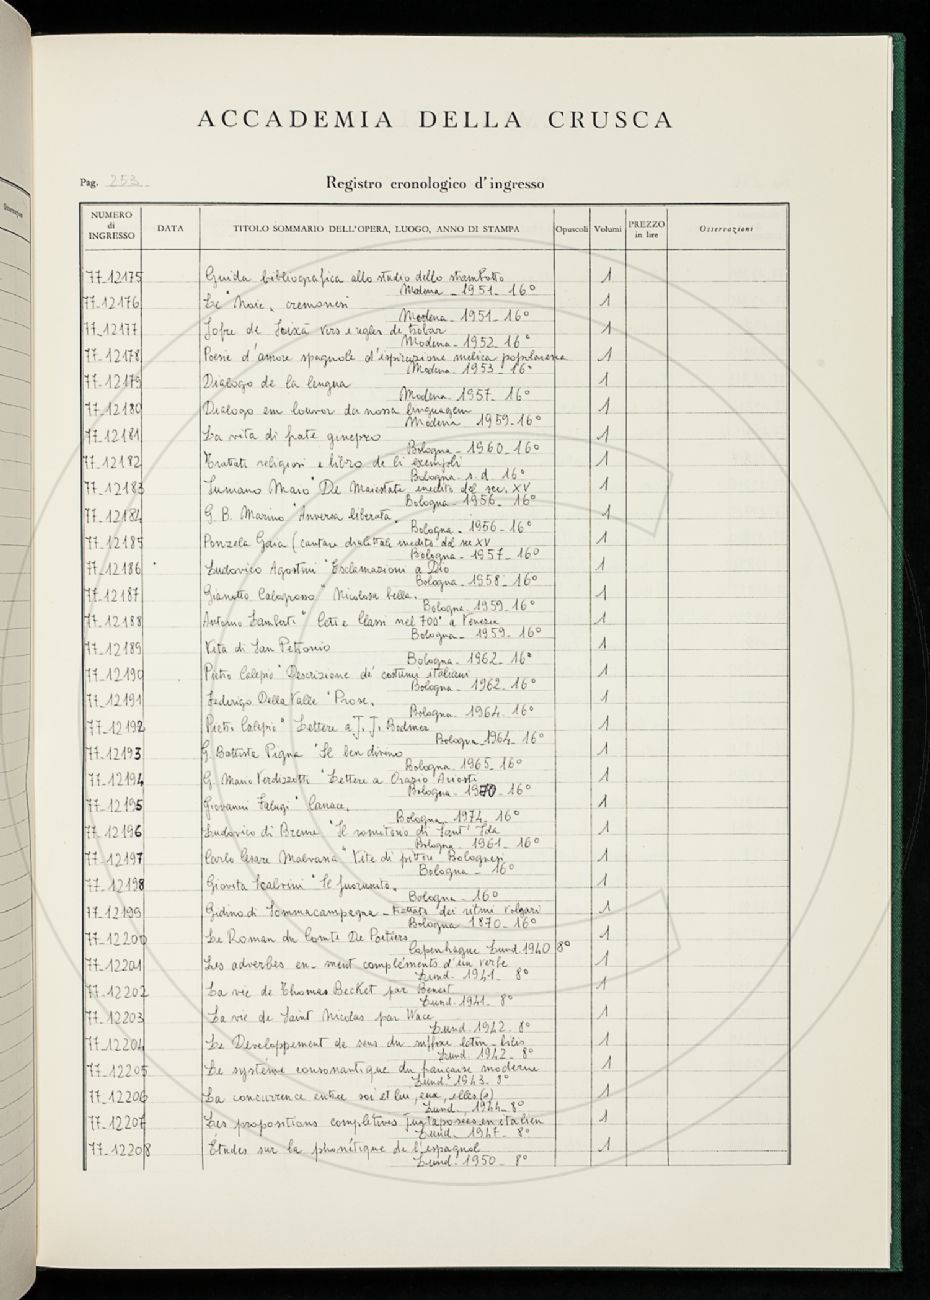 ACCADEMIA DELLA CRUSCA
Pag. 253
Registro cronologico d'ingresso
NUMERO di INGRESSO DATA TITOLO SOMMARIO DELL'OPERA, LUOGO, ANNO DI STAMPA Opuscoli Volumi PREZZO in lire Osservazioni
77-12175 Guida bibliografica allo studio dello strambotto 1
Modena - 1951 - 16°
77-12176 Le "Noie" cremonesi 1
Modena - 1951 - 16°
77-12177 Jofre de Foixà Vers e regles de trobar 1
Modena - 1952 - 16°
77-12178 Poesie d'amore spagnole d'ispirazione melica popolaresca 1
Modena - 1953 - 16°
77-12179 Dialogo de la lengua 1
Modena - 1957 - 16°
77-12180 Dialogo em louvor da nossa linguagem 1
Modena 1959 - 16°
77-12181 La vita di frate ginepro 1
Bologna - 1960 - 16°
77-12182 Trattati religiosi e libro de li exempli 1
Bologna - s.d. 16°
77-12183 Iuniano Maio "De Maiestate inedito del sec. XV 1
Bologna - 1956 - 16°
77-12184 G. B. Marino "Anversa liberata" 1
Bologna - 1956 - 16°
77-12185 Ponzela Gaia (cantare dialettale inedito del sec XV 1
Bologna - 1957 - 16°
77-12186 Ludovico Agostini "Esclamazioni a Dio 1
Bologna - 1958 - 16°
77-12187 Gianotto Calogrosso "Nicolosa bella" 1
Bologna - 1959 - 16°
77-12188 Antonio Lamberti " Ceti e Classi nel 700' a Venezia 1
Bologna - 1959 - 16°
77-12189 Vita di San Petronio 1
Bologna - 1962 - 16°
77-12190 Pietro Calepio "Descrizione de' costumi italiani 1
Bologna - 1962 - 16°
77-12191 Federigo Della Valle "Prose" 1
Bologna - 1964 - 16°
77-12192 Pietro Calepio" Lettere a J. J. Bodmer 1
Bologna - 1964 - 16°
77-12193 G. Battista Pigna "Il ben divino 1
Bologna - 1965 - 16°
77-12194 G. Mario Verdizzotti "Lettere a Orazio Ariosti 1
Bologna - 1970 - 16°
77-12195 Giovanni Falugi "Canace" 1
Bologna - 1974 - 16°
77-12196 Ludovico di Breme "Il romitorio di Sant' Ida 1
Bologna - 1961 - 16°
77-12197 Carlo Cesare Malvasia "Vite di pittori Bolognesi 1
Bologna - 16°
77-12198 Giovita Scalvini "Il fuoruscito" 1
Bologna - 16°
77-12199 Gidino di Sommacampagna - trattato dei ritmi volgari 1
Bologna 1870 - 16°
77-12200 Le Roman du Comte De Poitiers 1
Copenhague Lund 1940 8°
77-12201 Les adverbes en - ment compléments d'un verbe 1
Lund - 1941 - 8°
77-12202 La vie de Thomas Becket par Beneit 1
Lund - 1941 - 8°
77-12203 La vie de Saint Nicolas par Wace 1
Lund - 1942 - 8°
77-12204 Le Developpement de sens du suffixe latin - bilis 1
Lund - 1942 - 8°
77-12205 Le système consonantique du française moderne 1
Lund - 1943 - 8°
77-12206 La concurrence entre soi et lui, eux, elle(s) 1
Lund - 1944 - 8°
77-12207 Les propositions complétives juxtaposées en italien 1
Lund - 1947 - 8°
77-12208 Etudes sur la phonétique de l'espagnol 1
Lund - 1950 - 8°